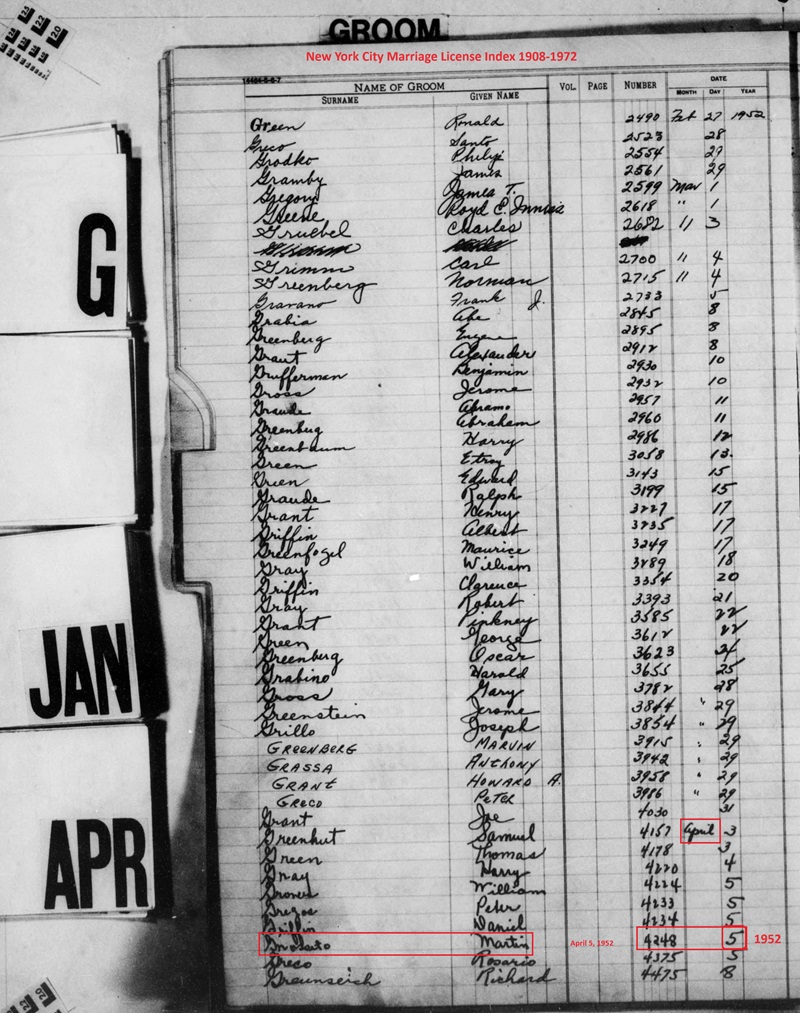 GROOM
New York City Marriage License Index 1908-1972
14464-5-6-7
NAME OF GROOM VOL. PAGE NUMBER DATE
SURNAME GIVEN NAME MONTH DAY YEAR
Green Ronald 2490 Feb 27 1952
Greco Santo 2523 28
Grodko Philip 2554 29
Gramby James 2561 29
Gregory James T. 2599 Mar 1
Greene Royd C. Inniss 2618 " 1
Gruebel Charles 2682 11 3
Grimm Carl 2700 11 4
Greenberg Norman 2715 11 4
Gravano Frank J. 2733 5
Grabia Abe 2845 8
Greenberg Eugene 2895 8
Grant Alexander 2912 8
Grufferman Benjamin 2930 10
Gross Jerome 2932 10
Graude Abramo 2957 11
Greenberg Abraham 2960 11
Greenbaum Harry 2986 12
Green Etroy 3058 13
Green Edward 3143 15
Graude Ralph 3199 15
Grant Henry 3227 17
Griffin Albert 3235 17
Greenfogel Maurice 3249 17
Gray William 3289 18
Griffin Clarence 3354 20
Gray Robert 3393 21
Grant Pinkney 3585 22
Green George 3612 22
Greenberg Oscar 3623 24
Grabino Harold 3655 25
Gross Gary 3782 28
Greenstein Jerome 3844 " 29
Grillo Joseph 3854 " 29
GREENBERG MARVIN 3915 " 29
GRASSA ANTHONY 3942 " 29
GRANT HOWARD A. 3958 " 29
GRECO PETER 3986 " 29
Grant Joe 4030 31
Greenhut Samuel 4157 April 3
Green Thomas 4178 3
Gray Harry 4220 4
Groves William 4224 5
Gregos Peter 4233 5
Griffin Daniel 4234 5
Martin April 5, 1952 4248 5 1952
Greco Rosario 4375 5
Richard 4475 8
G
JAN
APR